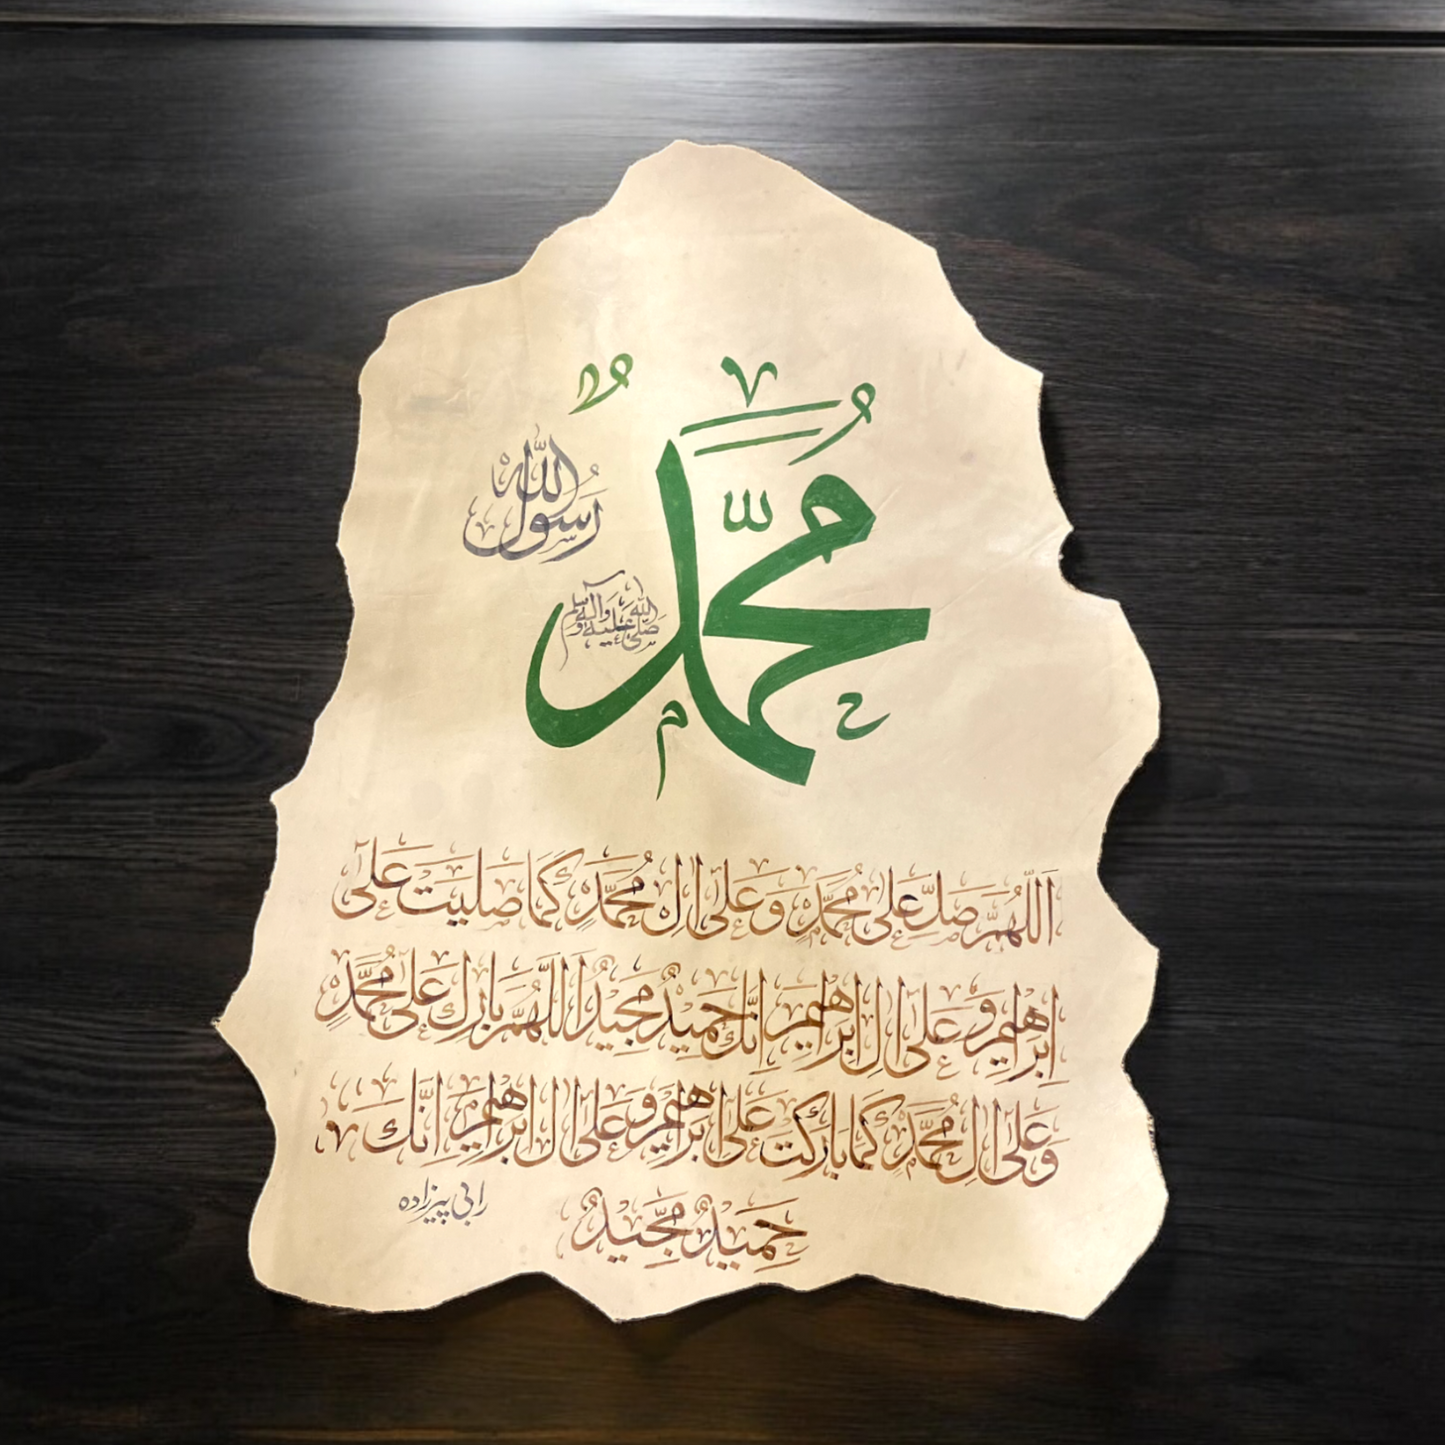 مُحَمَّدٌ
رَسُولُ اللّٰه
صَلَّى اللّٰه عَلَيْهِ وَآلِهٖ وَسَلَّم
اَللّٰهُمَّ صَلِّ عَلٰى مُحَمَّدٍ وَعَلٰٓى اٰلِ مُحَمَّدٍ كَمَا صَلَيْتَ عَلٰٓى
اِبْرَاهِيْمَ وَعَلٰٓى اٰلِ اِبْرَاهِيْمَ اِنَّكَ حَمِيْدٌ مَجِيْدٌ اَللّٰهُمَّ بَارِكْ عَلٰى مُحَمَّدٍ
وَعَلٰٓى اٰلِ مُحَمَّدٍ كَمَا بَارَكْتَ عَلٰٓى اِبْرَاهِيْمَ وَعَلٰٓى اٰلِ اِبْرَاهِيْمَ اِنَّكَ
حَمِيْدٌ مَّجِيْدٌ
رابی پیرزاده